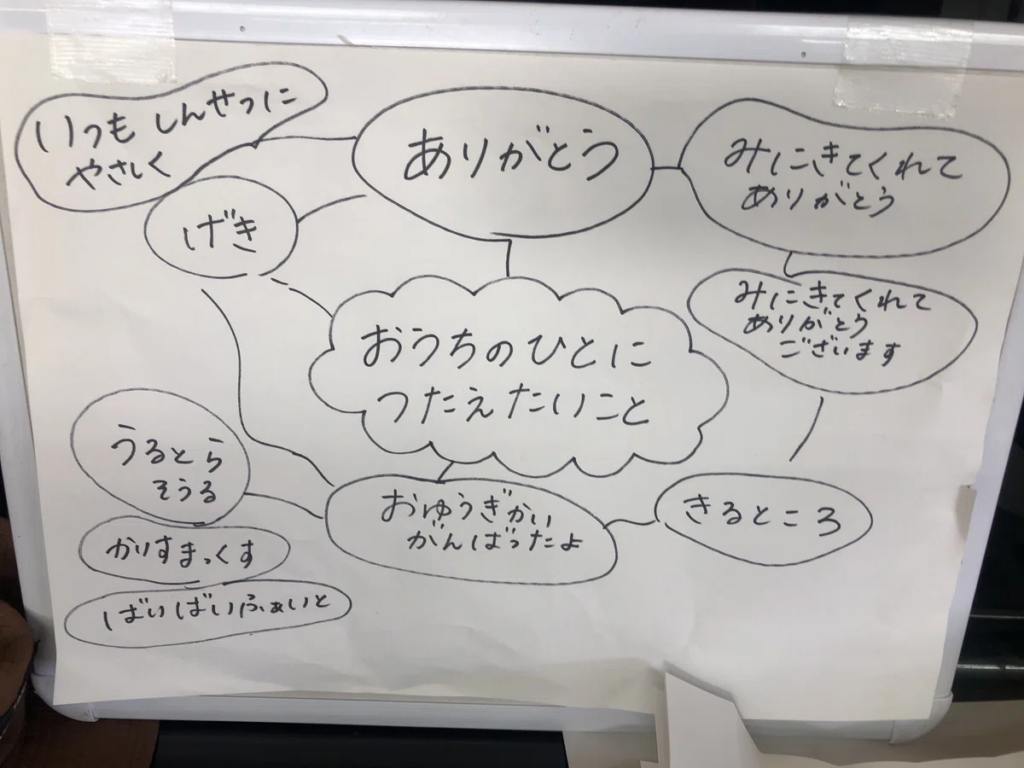 いつも しんせつに
やさしく
ありがとう
みにきてくれて
ありがとう
げき
みにきてくれて
ありがとう
ございます
おうちのひとに
つたえたいこと
うるとら
そうる
おゆうぎかい
がんばったよ
きるところ
かりすまっくす
ばいばいふぁいと